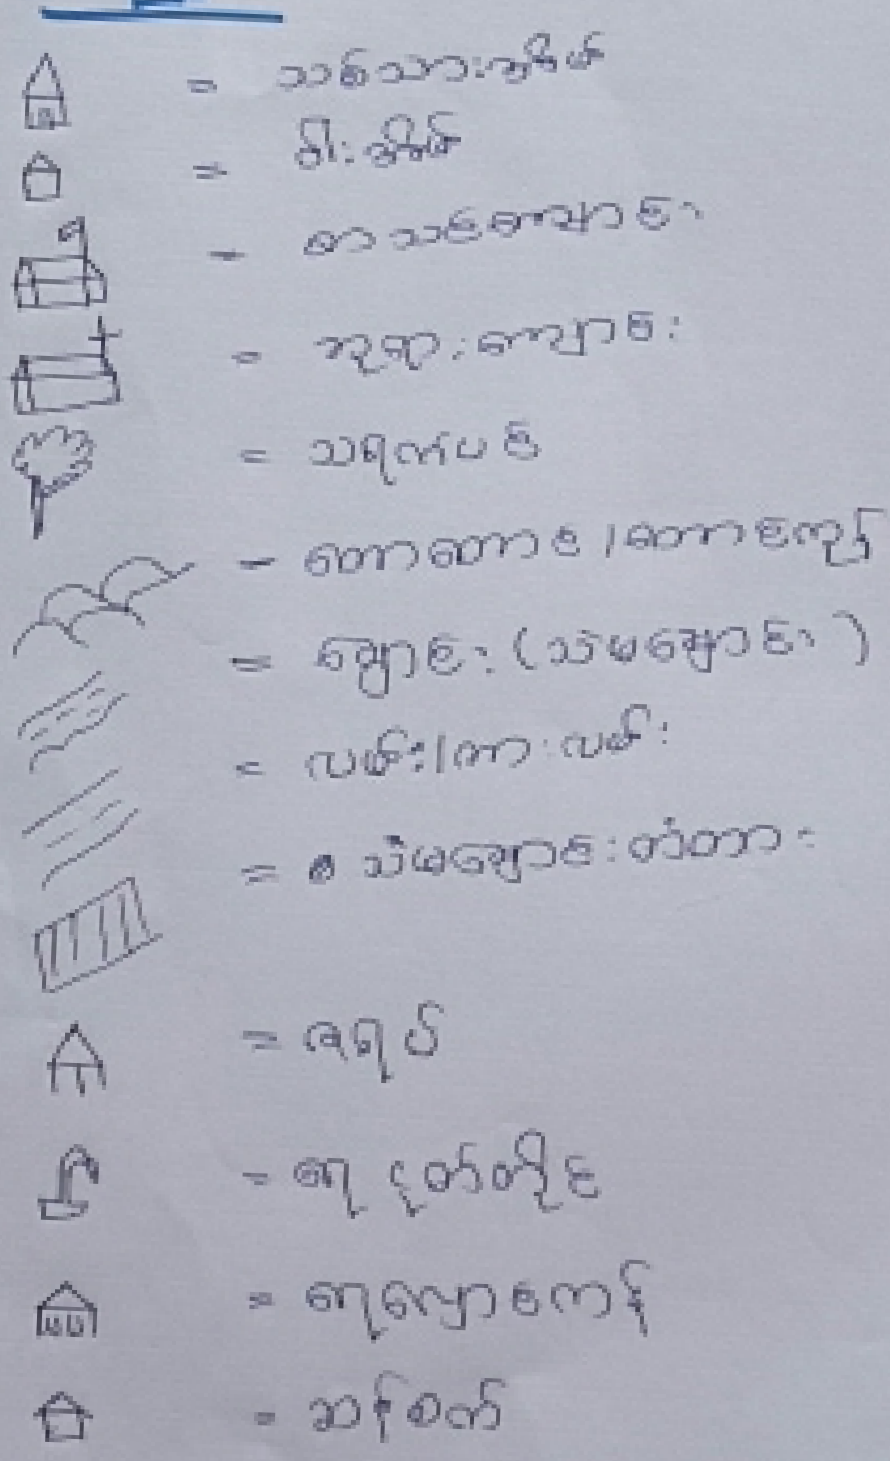 = သစ်သားအိမ်
= ဝါးအိမ်
= စာသင်ကျောင်း
= ဘုရားကျောင်း
= သရက်ပင်
= တောတောင်/တောင်ကုန်း
= ချောင်း (သံမချောင်း)
= လမ်း/ကားလမ်း
= သံမချောင်းတံတား
= ဇရပ်
= ရေငုတ်တိုင်
= ရေလှောင်ကန်
= ဆန်စက်